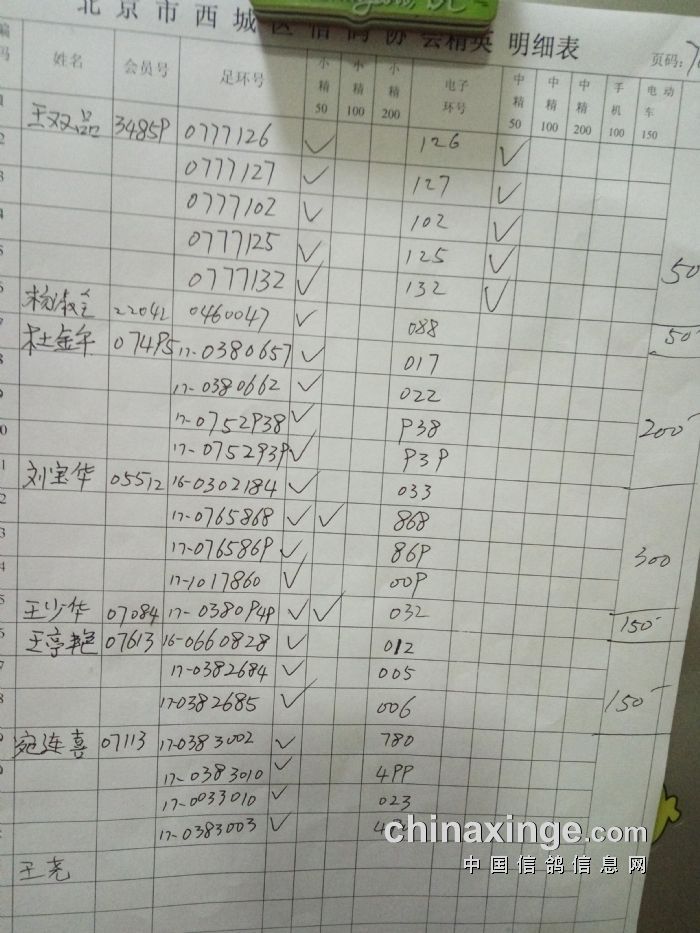 北京市西城区信鸽协会精英 明细表
页码:
编码 姓名 会员号 足环号 小精50 小精100 小精200 电子环号 中精50 中精100 中精200 手机100 电动车150
1 王双品 34859 0777126 ✓ 126 ✓
2 0777127 ✓ 127 ✓
3 0777102 ✓ 102 ✓
4 0777125 ✓ 125 ✓
5 0777132 ✓ 132 ✓ 50
6 22042 0460047 ✓ 088 50
7 杜金年 07495 17-0380657 ✓ 017
8 17-0380662 ✓ 022
9 17-0752938 ✓ 938
0 17-0752939 ✓ 939 200
1 刘宝华 05512 16-0302184 ✓ 033
2 17-0765868 ✓ ✓ 868
3 17-0765869 ✓ 869 300
4 17-1017860 ✓ 009
5 王少华 07084 17-0380949 ✓ ✓ 032 150
6 王亭艳 07613 16-0660828 ✓ 012
7 17-0382684 ✓ 005
8 17-0382685 ✓ 006 150
9 宛连喜 07113 17-0383002 ✓ 780
17-0383010 ✓ 499
17-0033010 ✓ 023
17-0383003 ✓
王尧
chinaxinge.com
中国信鸽信息网